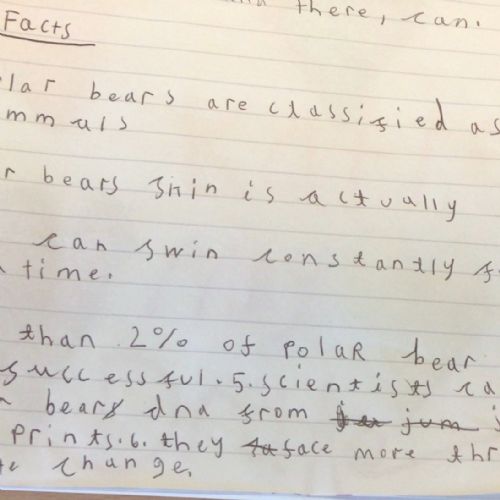 there, can.
Facts
lar bears are classified as
mmals
r bears skin is actually
can swin constantly f
time.
than 2% of polar bear
successful.5.scientists ca
bears dna from jum
prints.6.they face more thr
change.